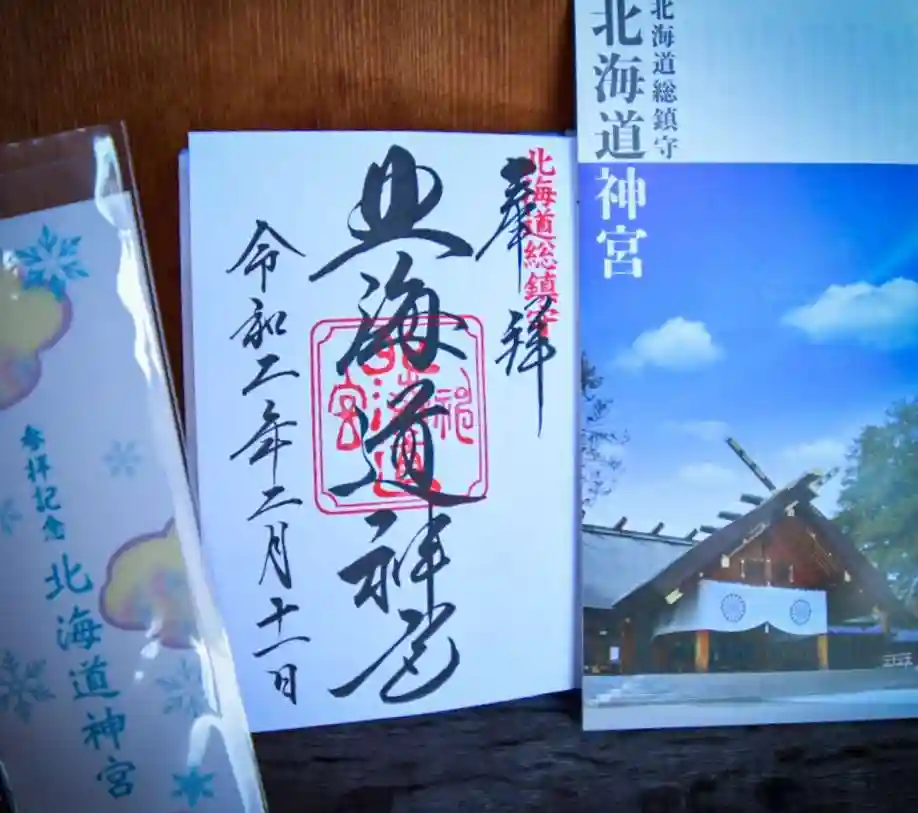 北海道総鎮守
北海道神宮
北海道総鎮守
奉拝
北海道神宮
北海道神宮
令和二年二月十一日
参拝記念
北海道神宮